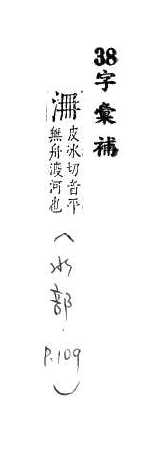 38字彙補
皮冰切音平
無舟渡河也
(水部.P.109)